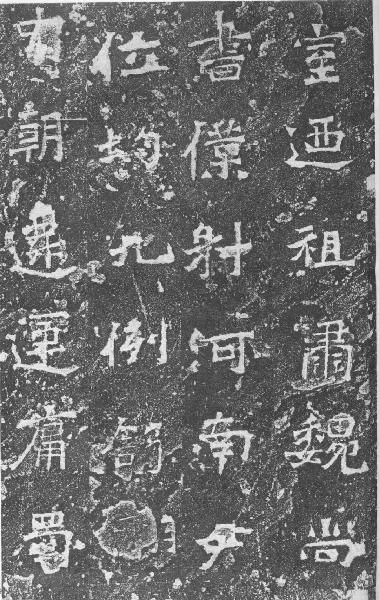 室迺祖肅魏尚
書僕射河南尹
位均九例
朝遷運庸蜀